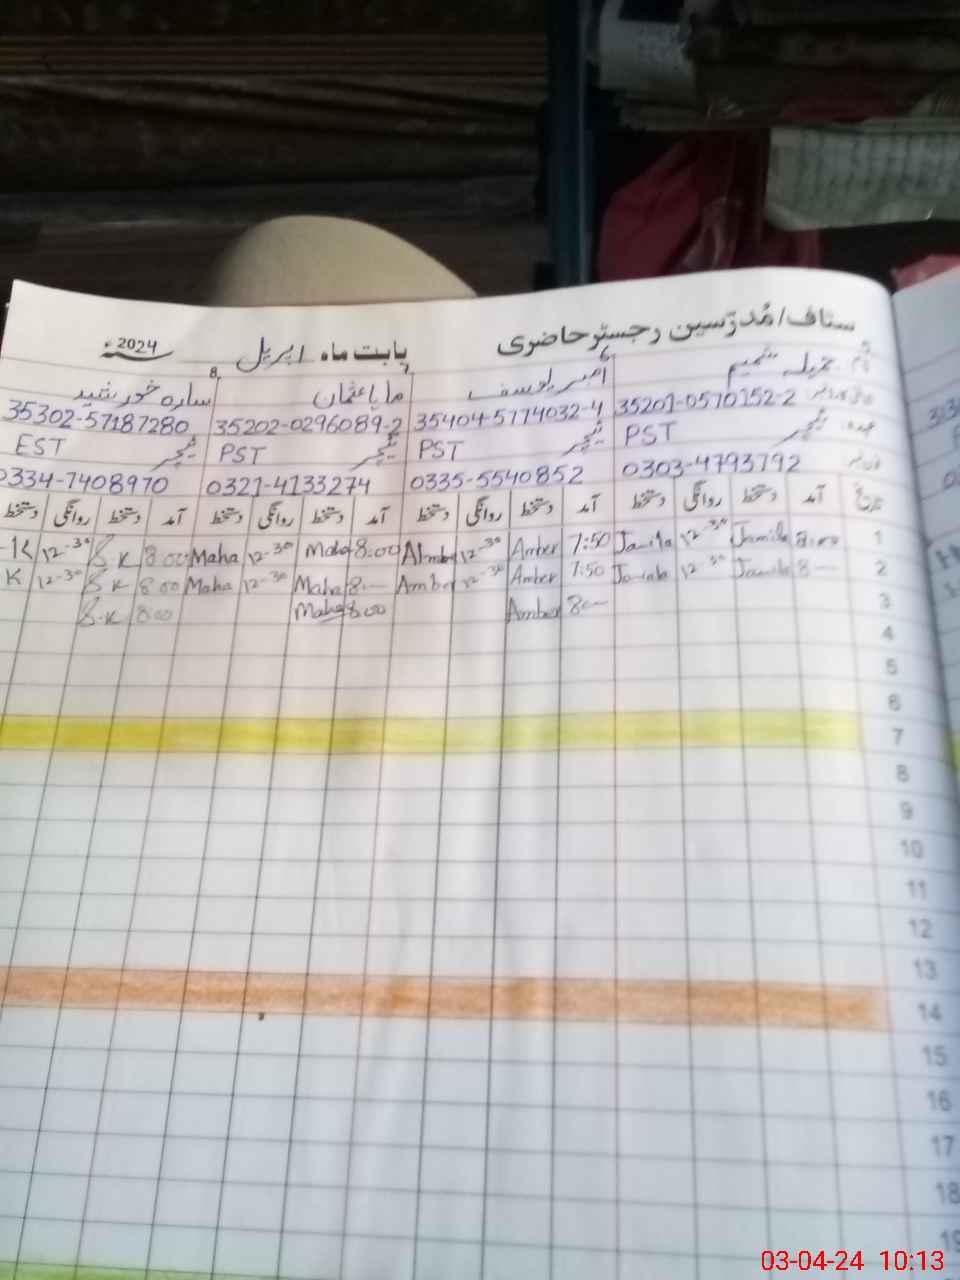 سٹاف/مُدرّسین رجسٹر حاضری بابت ماہ اپریل 2024ء
5 6 7 8
نام جمیلہ شمیم امبر یوسف ماہا عثمان سارہ خورشید
35201-0570152-2 35404-5774032-4 35202-0296089-2 35302-57187280
عہدہ PST ٹیچر PST ٹیچر PST ٹیچر EST ٹیچر
فون نمبر 0303-4793792 0335-5540852 0321-4133274 0334-7408970
تاریخ آمد دستخط روانگی دستخط آمد دستخط روانگی دستخط آمد دستخط روانگی دستخط آمد دستخط روانگی دستخط
1 8:00 Jamila 12-30 Jamila 7:50 Amber 12-30 Amber 8:00 Maha 12-30 Maha 8:00 S.K 12-30 K
2 8 Jamila 12-30 Jamila 7:50 Amber 12-30 Amber 8 Maha 12-30 Maha 8:00 S.K 12-30 K
3 8 Amber 8:00 Maha 8:00 S.K
4
5
6
7
8
9
10
11
12
13
14
15
16
17
18
19
03-04-24 10:13